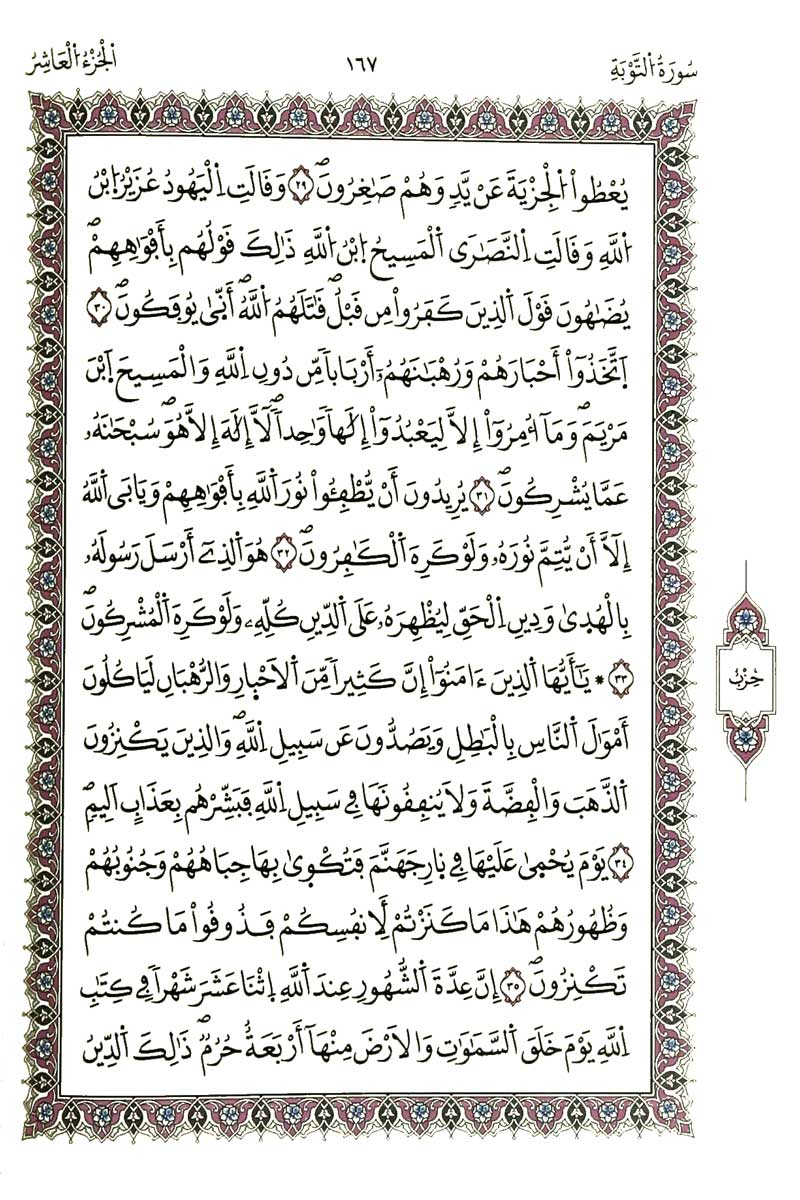 سُورَةُ التَّوْبَةِ
١٦٧
الْجُزْءُ الْعَاشِرُ
يُعْطُوا۟ اُ۬لْجِزْيَةَ عَنْ يَّدٖ وَهُمْ صَٰغِرُونَۖ ٢٩ وَقَالَتِ اِ۬لْيَهُودُ عُزَيْرُ اُ۪بْنُ
اُ۬للَّهِ وَقَالَتِ اِ۬لنَّصَٰرَى اَ۬لْمَسِيحُ اُ۪بْنُ اُ۬للَّهِ ذَٰلِكَ قَوْلُهُم بِأَفْوَٰهِهِمْۖ
يُضَٰهُونَ قَوْلَ اَ۬لذِينَ كَفَرُوا۟ مِن قَبْلُۖ قَٰتَلَهُمُ اُ۬للَّهُۖ أَنّ۪يٰ يُوفَكُونَۖ ٣٠
اَ۪تَّخَذُوٓا۟ أَحْبَارَهُمْ وَرُهْبَٰنَهُمُۥٓ أَرْبَاباٗ مِّن دُونِ اِ۬للَّهِ وَالْمَسِيحَ اَ۪بْنَ
مَرْيَمَۖ وَمَآ أُمِرُوٓا۟ إِلَّا لِيَعْبُدُوٓا۟ إِلَٰهاٗ وَٰحِداٗۖ لَّآ إِلَٰهَ إِلَّا هُوَۖ سُبْحَٰنَهُۥ
عَمَّا يُشْرِكُونَۖ ٣١ يُرِيدُونَ أَنْ يُّطْفِـُٔوا۟ نُورَ اَ۬للَّهِ بِأَفْوَٰهِهِمْ وَيَابَى اَ۬للَّهُ
إِلَّآ أَنْ يُّتِمَّ نُورَهُۥ وَلَوْ كَرِهَ اَ۬لْكَٰفِرُونَۖ ٣٢ هُوَ اَ۬لذِےٓ أَرْسَلَ رَسُولَهُۥ
بِالْهُد۪يٰ وَدِينِ اِ۬لْحَقِّ لِيُظْهِرَهُۥ عَلَى اَ۬لدِّينِ كُلِّهِۦ وَلَوْ كَرِهَ اَ۬لْمُشْرِكُونَۖ
٣٣ * يَٰٓأَيُّهَا اَ۬لذِينَ ءَامَنُوٓا۟ إِنَّ كَثِيراٗ مِّنَ اَ۬لَاحْب۪ارِ وَالرُّهْبَانِ لَيَاكُلُونَ
أَمْوَٰلَ اَ۬لنَّاسِ بِالْبَٰطِلِ وَيَصُدُّونَ عَن سَبِيلِ اِ۬للَّهِۖ وَالذِينَ يَكْنِزُونَ
اَ۬لذَّهَبَ وَالْفِضَّةَ وَلَا يُنفِقُونَهَا فِے سَبِيلِ اِ۬للَّهِ فَبَشِّرْهُم بِعَذَابٍ اَلِيمٖۖ
٣٤ يَوْمَ يُحْم۪يٰ عَلَيْهَا فِے ن۪ارِ جَهَنَّمَ فَتُكْو۪يٰ بِهَا جِبَاهُهُمْ وَجُنُوبُهُمْ
وَظُهُورُهُمْ هَٰذَا مَا كَنَزْتُمْ لِأَنفُسِكُمْ فَذُوقُوا۟ مَا كُنتُمْ
تَكْنِزُونَۖ ٣٥ إِنَّ عِدَّةَ اَ۬لشُّهُورِ عِندَ اَ۬للَّهِ اِ۪ثْنَا عَشَرَ شَهْراٗ فِے كِتَٰبِ
اِ۬للَّهِ يَوْمَ خَلَقَ اَ۬لسَّمَٰوَٰتِ وَالَارْضَ مِنْهَآ أَرْبَعَةٌ حُرُمٞۖ ذَٰلِكَ اَ۬لدِّينُ
حِزْبٌ